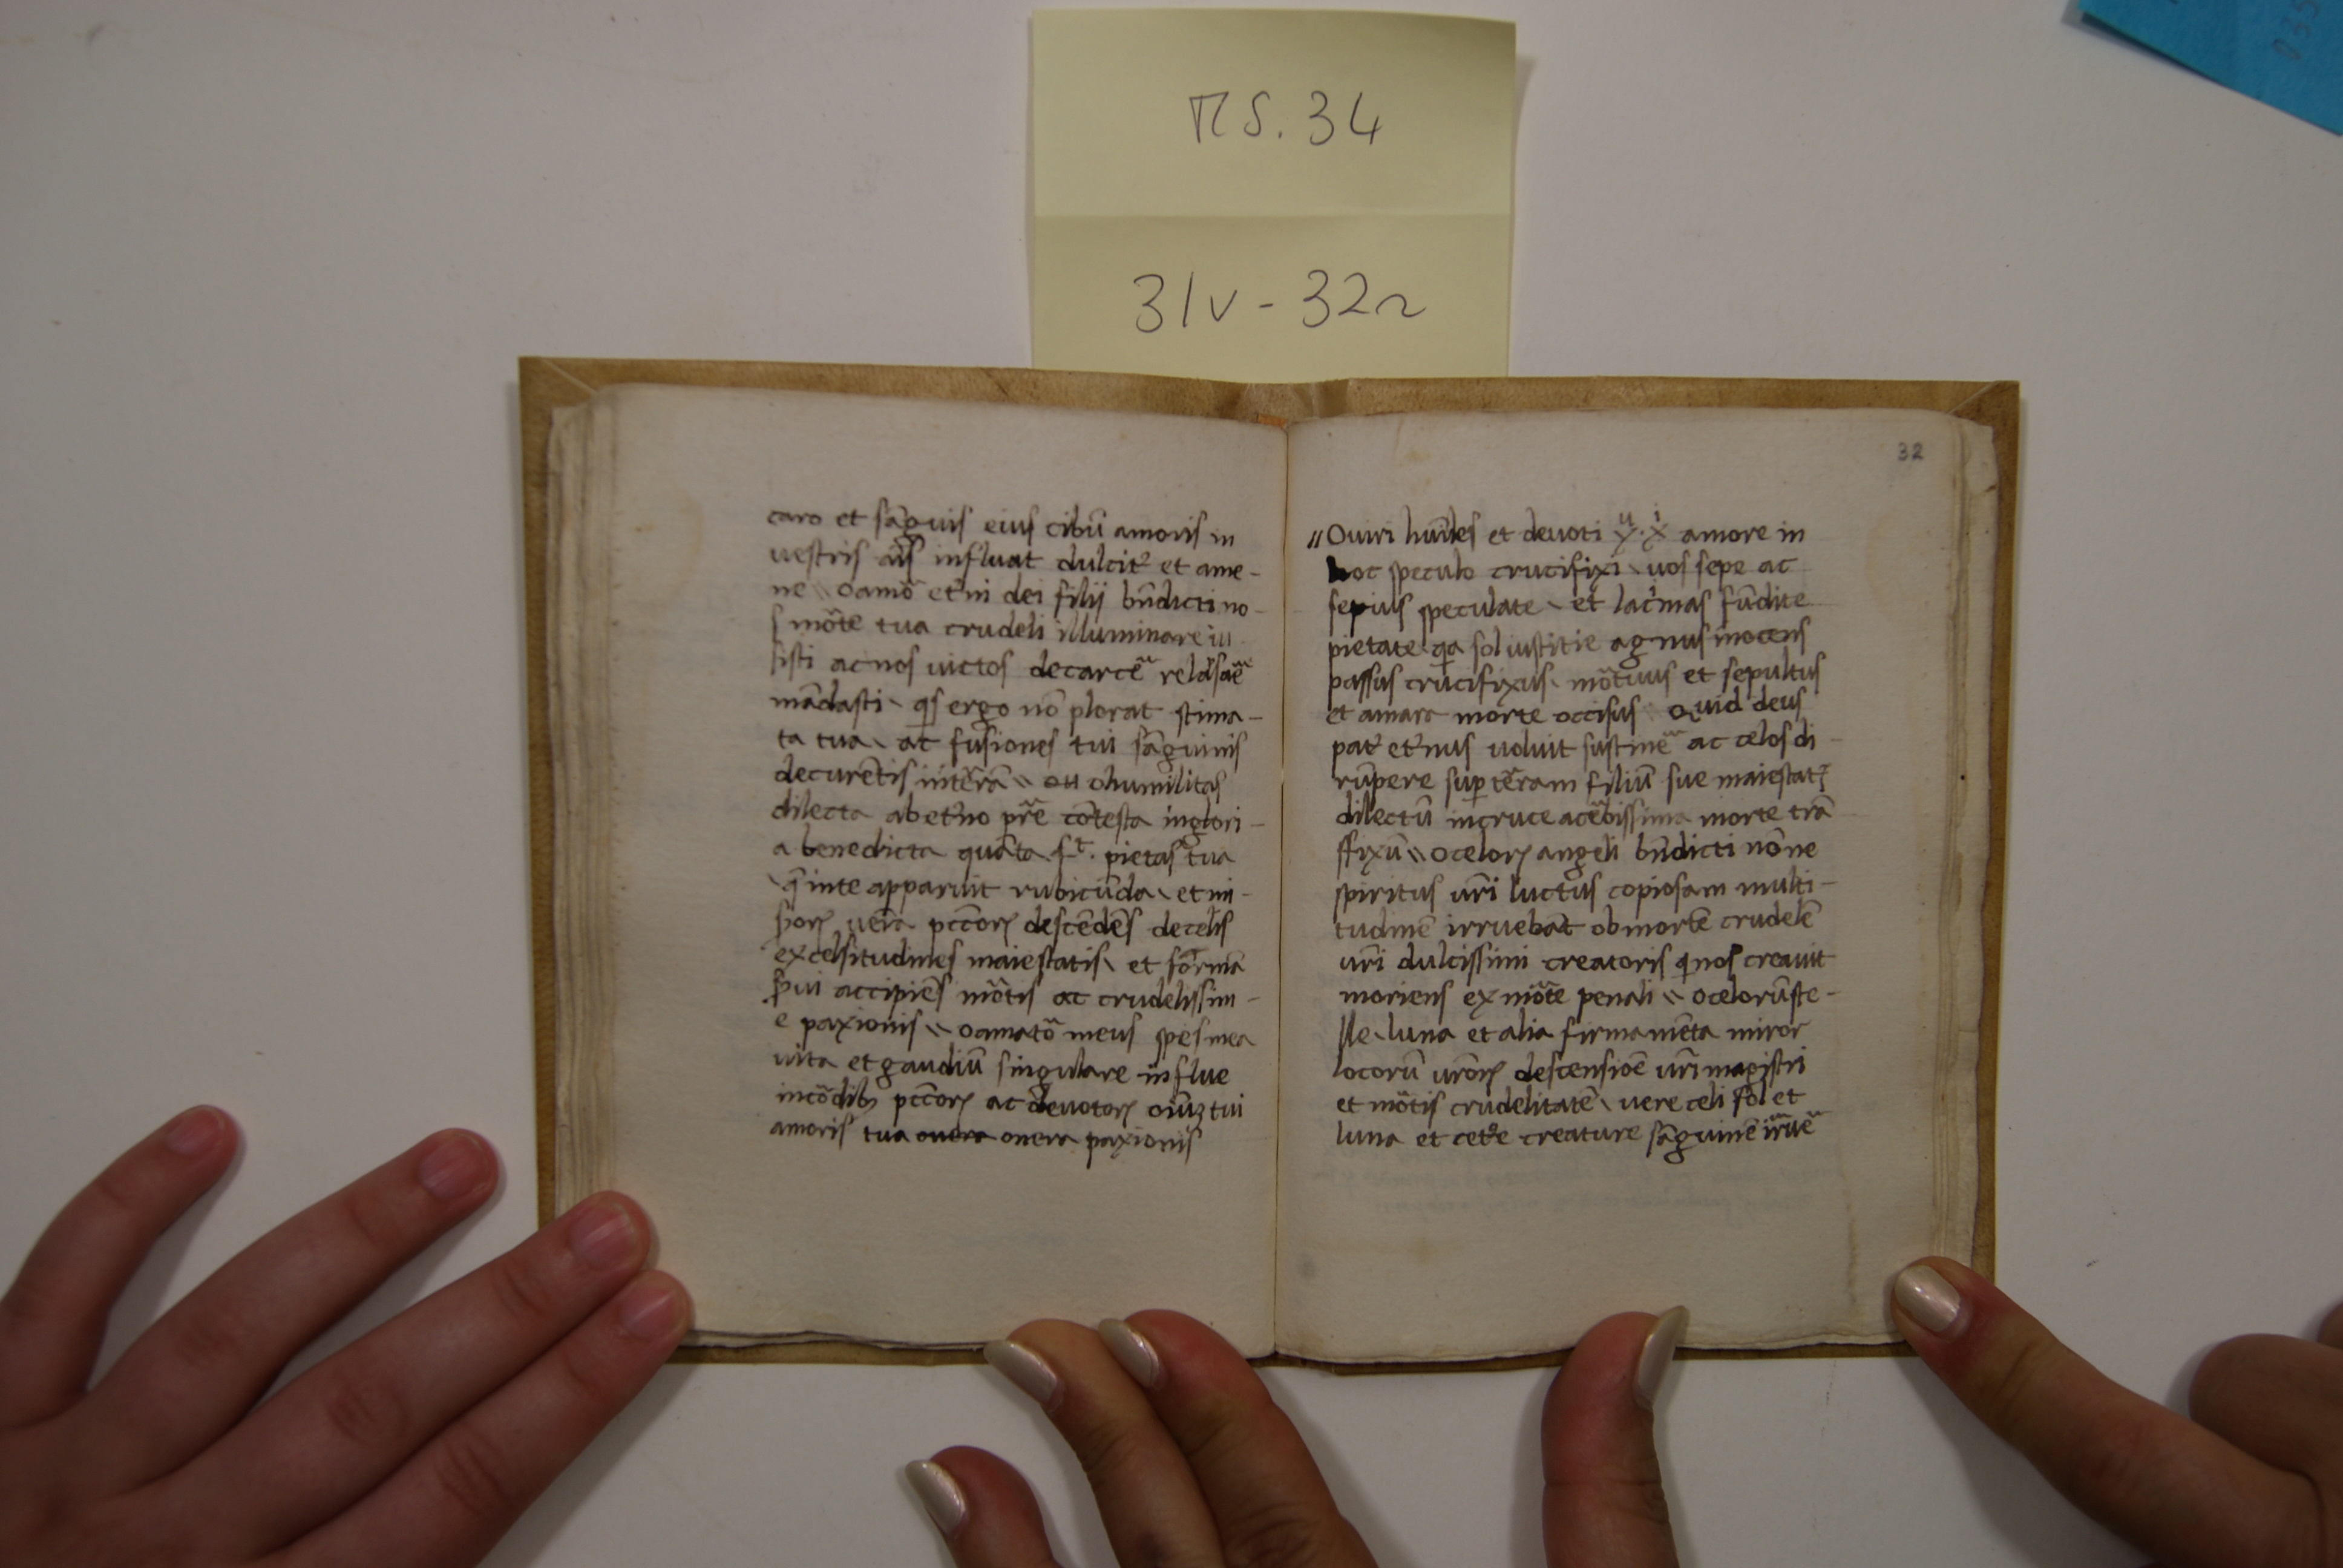 MS. 34
31v - 32r
32
caro et sāguis eius cibū amoris in
vestris aīs influat dulcit᷑ et ame-
ne \\ o amo᷑ et᷑ni dei filij bn̄dicti no-
s mo᷑te tua crudeli illuminare iu
sisti ac nos victos de carce᷑
mādasti \ qs ergo nō plorat stima-
ta tua \ ac fusiones tui sāguinis
decurētis in te᷑rā \\ o humilitas
dilecta ab et᷑no pr̄e cōtesta in glori-
a benedicta quāta f᷑t. pietas tua
\ q̄ in te apparuit rubicūda \ et mi-
pccorꝝ descēdēs de celis
excelsitudines maiestatis \ et formā
accipiēs mo᷑tis ac crudelissim-
e paxionis \\ o amato᷑ meus spes mea
vita et gaudiū singulare influe
in co᷑dibꝫ pccorꝝ ac devotorꝝ oīuꝫ tui
amoris tua onera paxionis
\\ O viri huīles et devoti y.x amore in
hoc speculo crucifixi \ vos sepe ac
sepius speculate \ et lac᷑mas fūdite
pietate qa sol iustitie agnus inocens
passus crucifixus \ mo᷑tuus et sepultus
et amara morte occisus o quid deus
pat᷑ et᷑nus voluit sustine᷑ ac celos di-
rūpere sup te᷑ram filiū sue maiestat᷑
dilectū in cruce ace᷑bissima morte trā
ffixū \\ o celorꝝ angeli bn̄dicti nōne
spiritus vr̄i luctus copiosam multi-
tudinē irruebāt ob mortē crudelē
vr̄i dulcissimi creatoris q nos creavit
moriens ex mo᷑te penali \\ o celorū ste-
lle \ luna et alia firmamēta miror
locorū vr̄orꝝ descensioē vr̄i magistri
et mo᷑tis crudelitatē \ vere celi sol et
luna et cet᷑e creature sāguinē irrue᷑